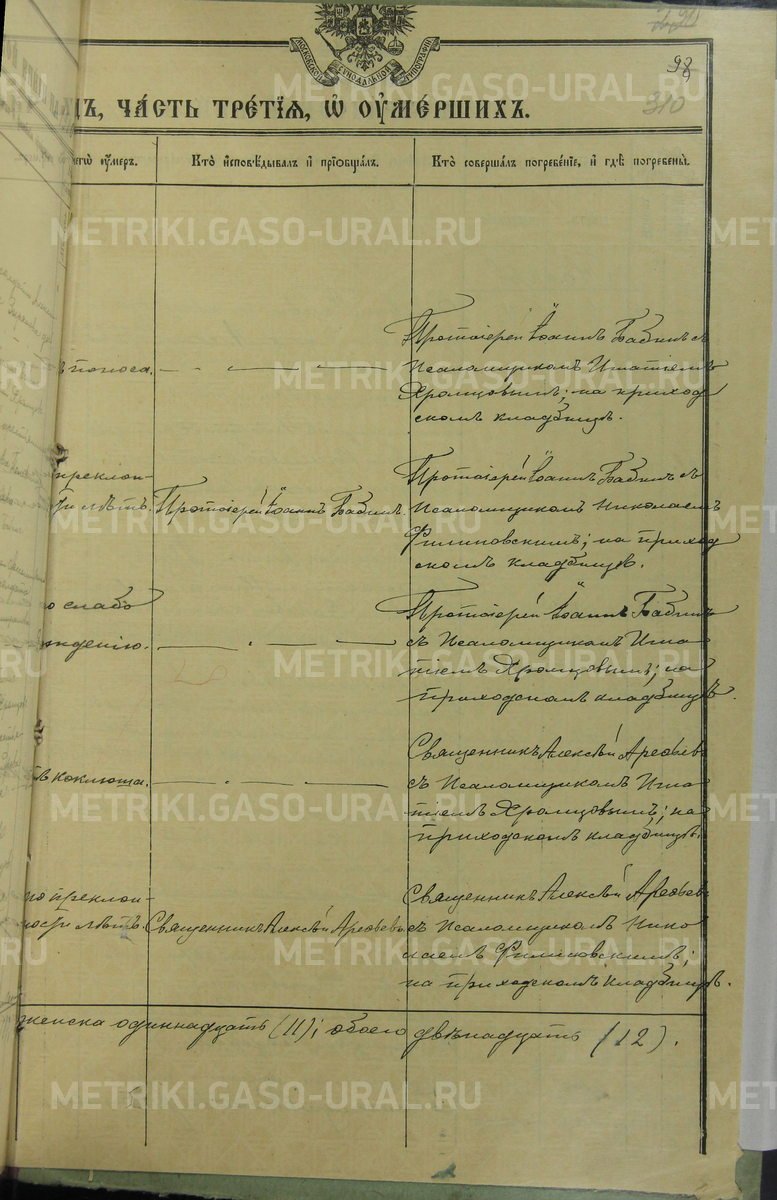 МОСКОВСКОЙ СѴНОДАЛЬНОЙ ТИПОГРАФІИ
98
310
ЧА́СТЬ ТРЕ́ТЇѦ, Ѡ҆ ОУ҆МЕ́РШИХЪ.
чегѡ̀ оу҆́меръ. Кто̀ и҆сповѣ́дывалъ и҆ прїѡбща́лъ. Кто̀ соверша́лъ погребе́нїе, и҆ гдѣ̀ погребены̀.
Протоіерей Іоаннъ Бабинъ съ
поноса. Псаломщикомъ Игнатіемъ
Хромцовымъ; на приход
скомъ кладбищѣ.
преклон-
сти лѣтъ. Протоіерей Іоаннъ Бабинъ.
Протоіерей Іоаннъ Бабинъ съ
Псаломщикомъ Николаемъ
Филиповскимъ; на приход
скомъ кладбищѣ.
о слабо
ждению.
Протоіерей Іоаннъ Бабинъ
съ Псаломщикомъ Игна
тіемъ Хромцовымъ; на
приходскомъ кладбищѣ.
коклюша.
Священникъ Алексѣй Арефьевъ
съ Псаломщикомъ Игна
тіемъ Хромцовымъ; на
приходскомъ кладбищѣ.
по преклон-
ности лѣтъ. Священникъ Алексѣй Арефьевъ
Священникъ Алексѣй Арефьевъ
съ Псаломщикомъ Нико
лаемъ Филиповскимъ;
на приходскомъ кладбищѣ.
женска одиннадцать (11); обоего двѣнадцать (12).
METRIKI.GASO-URAL.RU